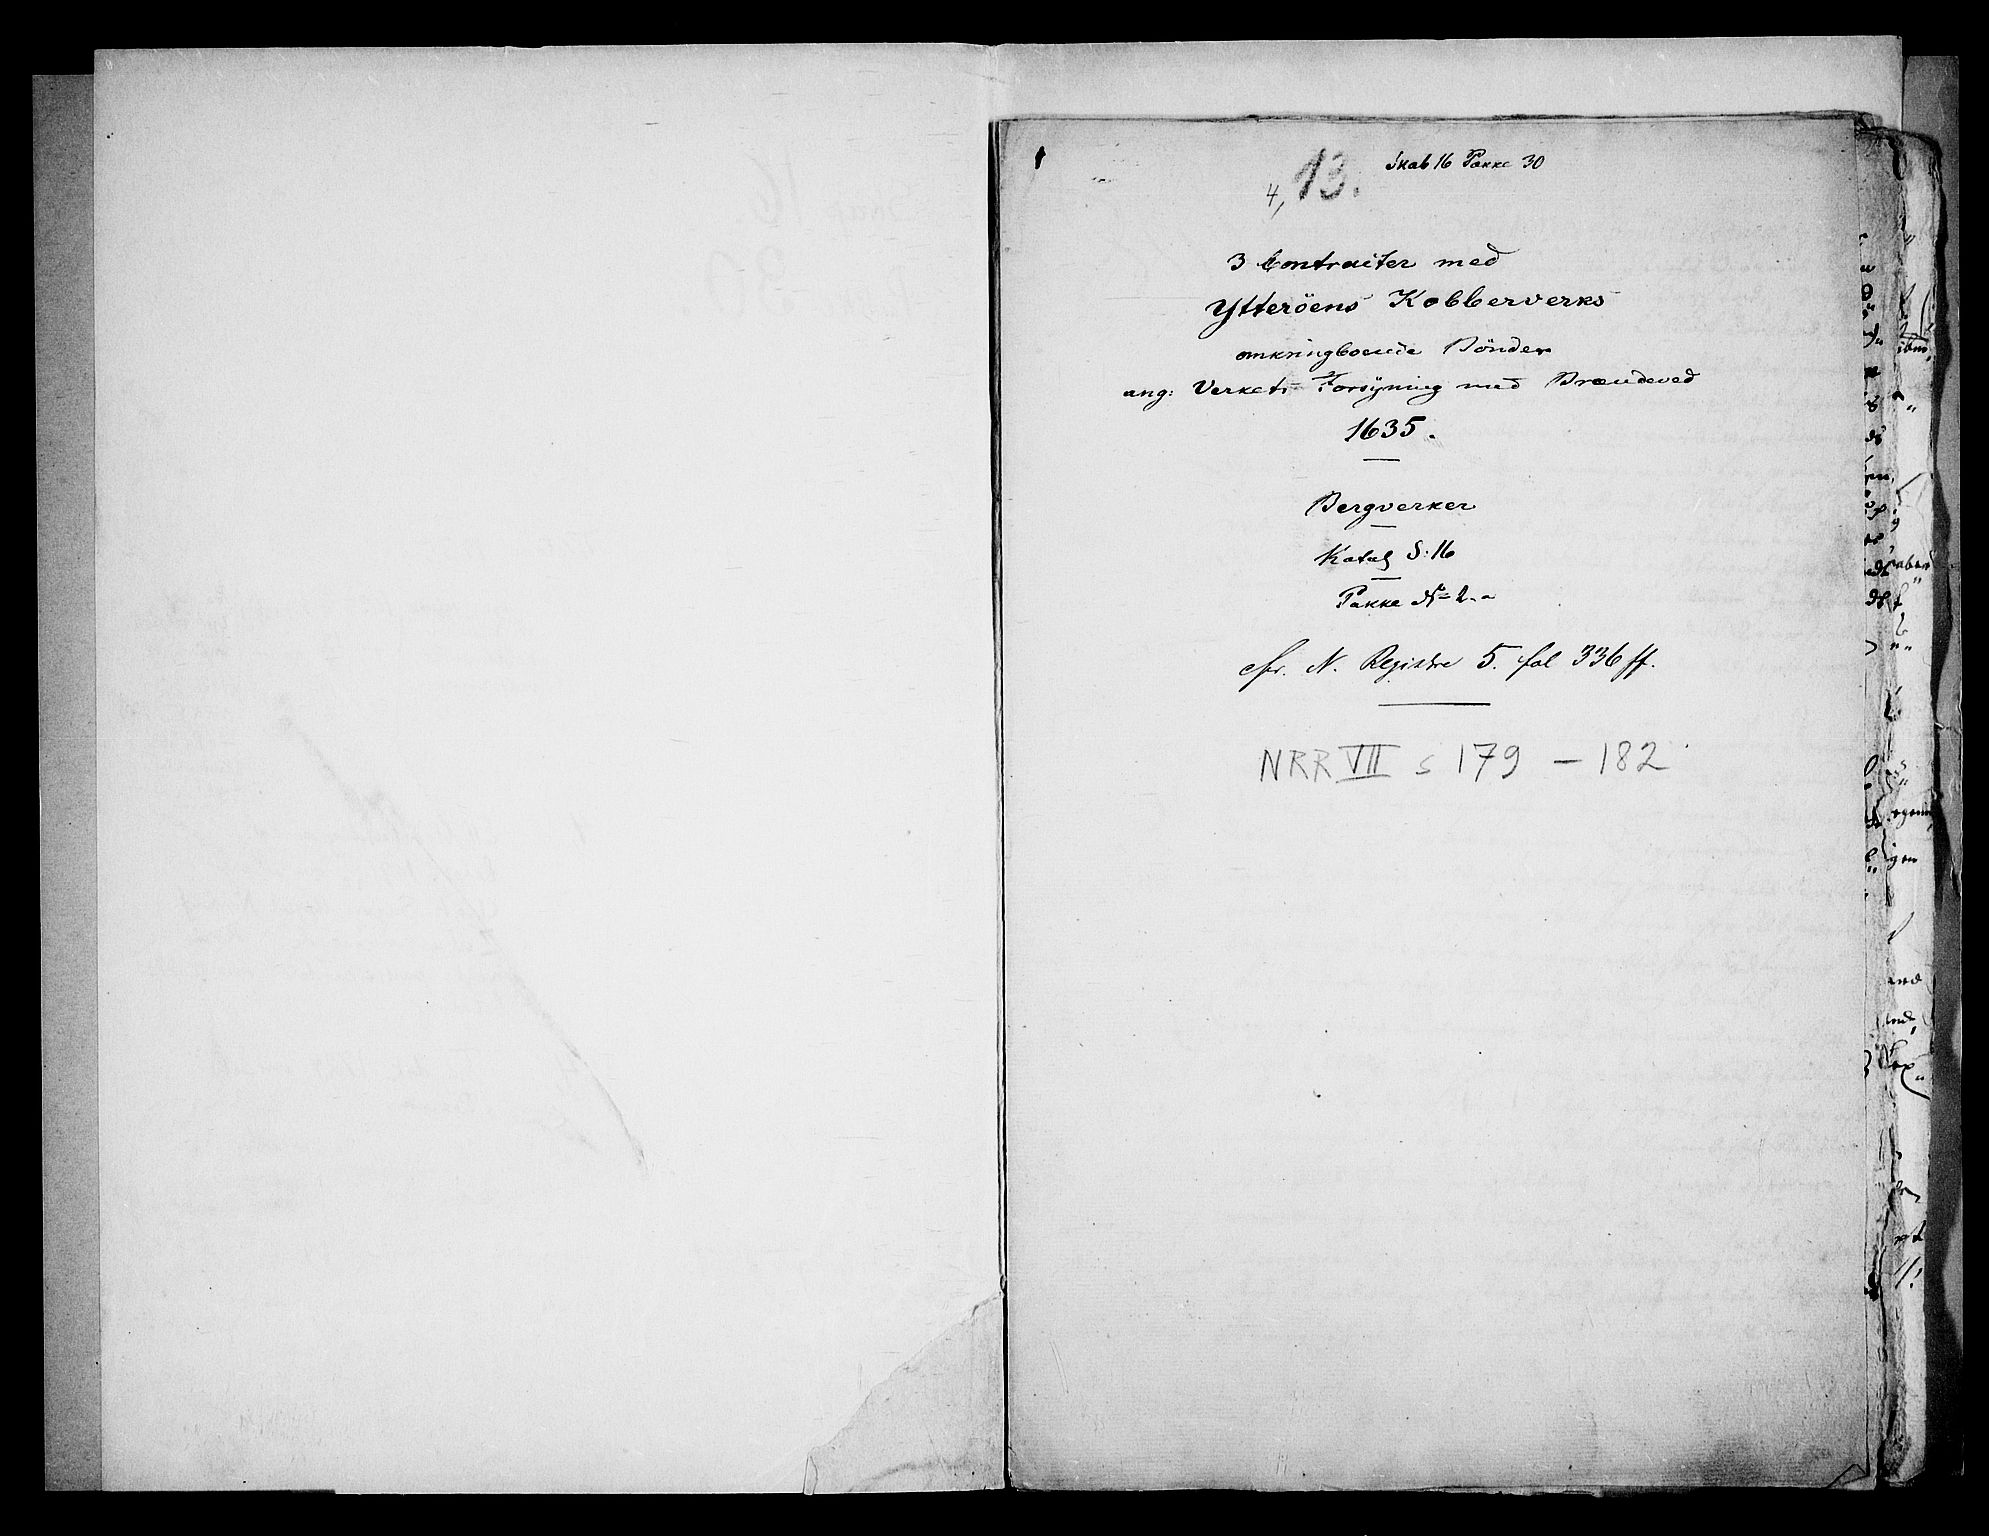 Skab 16 Pakke 30
4, 13.
3 Contracter med
Ytteröens Kobberverks
omkringboende Bönder
ang: Verkets Forsÿning med Brændeved
1635.
Bergverker
Katal S: 16
Pakke No 2.a
cfr. N. Registre 5. fol 336 ff.
NRR VII s 179 - 182